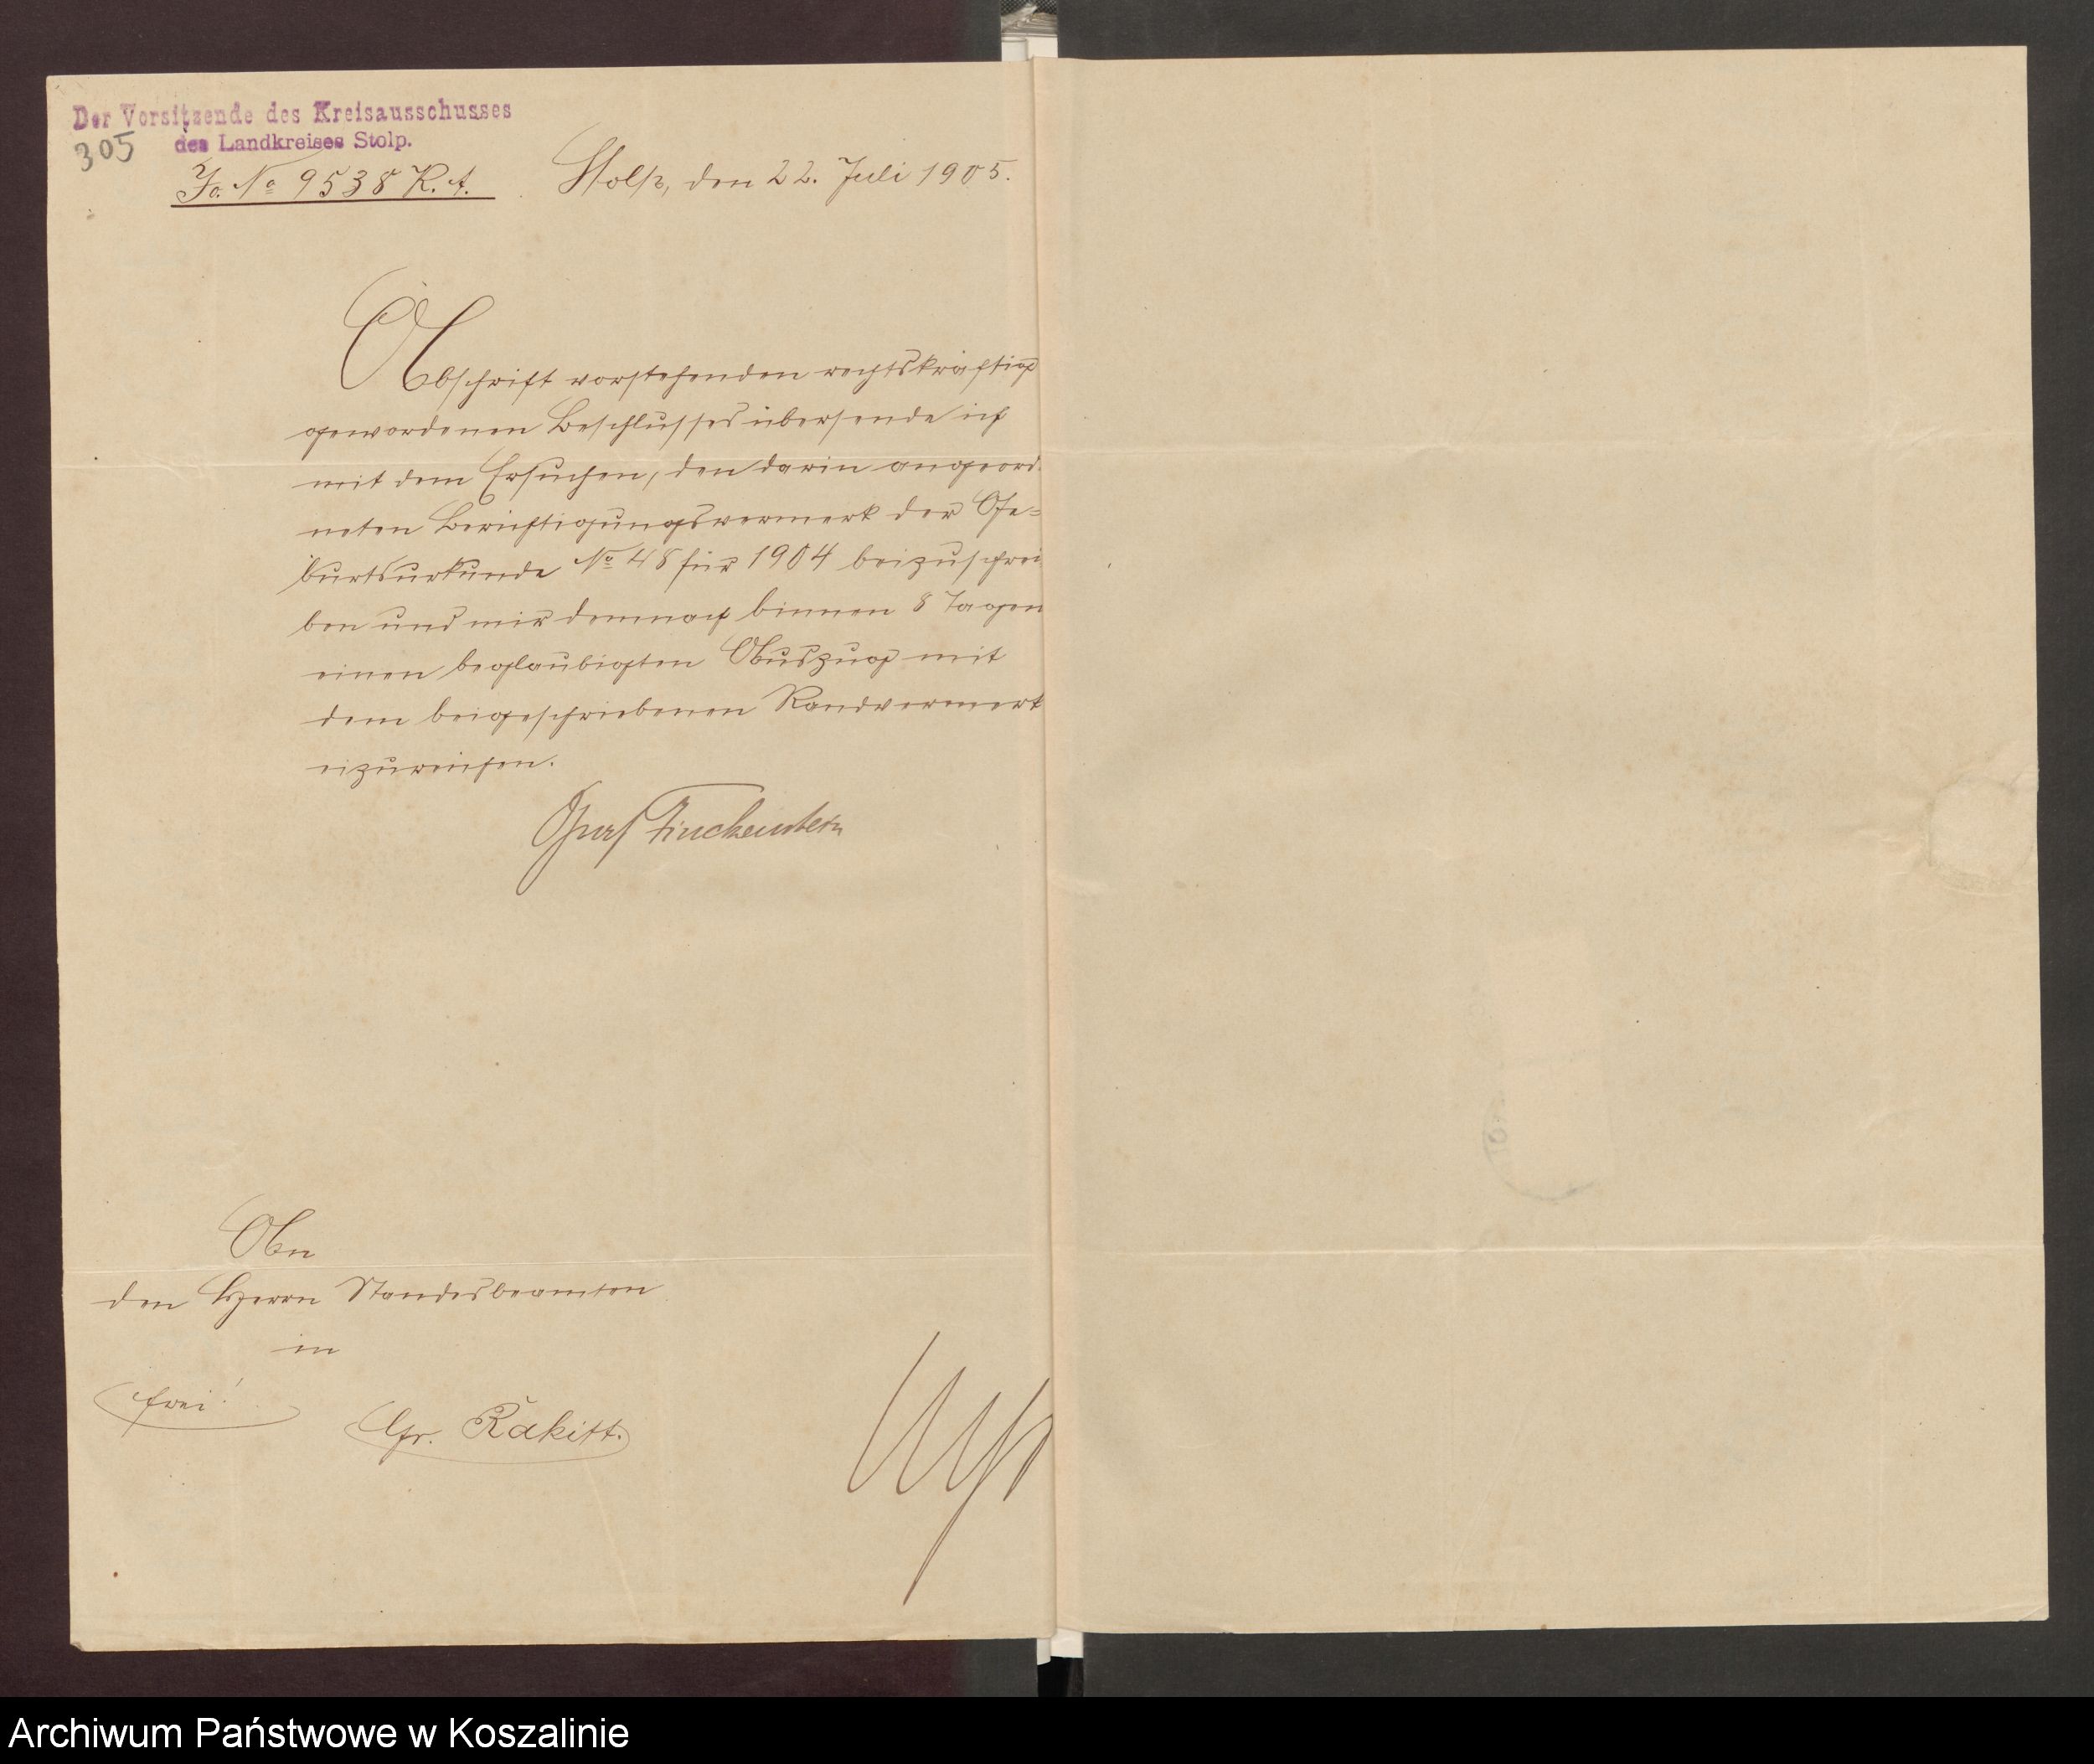 Der Vorsitzende des Kreisausschusses
des Landkreises Stolp.
305
Jo. No 9538 K. A.
Stolp, den 22. Juli 1905.
Abschrift vorstehenden rechtskräftig
gewordenen Beschlusses übersende ich
mit dem Ersuchen, den darin angeord-
neten Berichtigungsvermerk der Ge-
burtsurkunde No 48 für 1904 beizuschrei
ben und mir demnach binnen 8 Tagen
einen beglaubigten Auszug mit
dem beigeschriebenen Randvermerk
eizureichen.
Graf Finckenstein
An
den Herrn Standesbeamten
in
frei!
Gr. Rakitt.
Archiwum Państwowe w Koszalinie